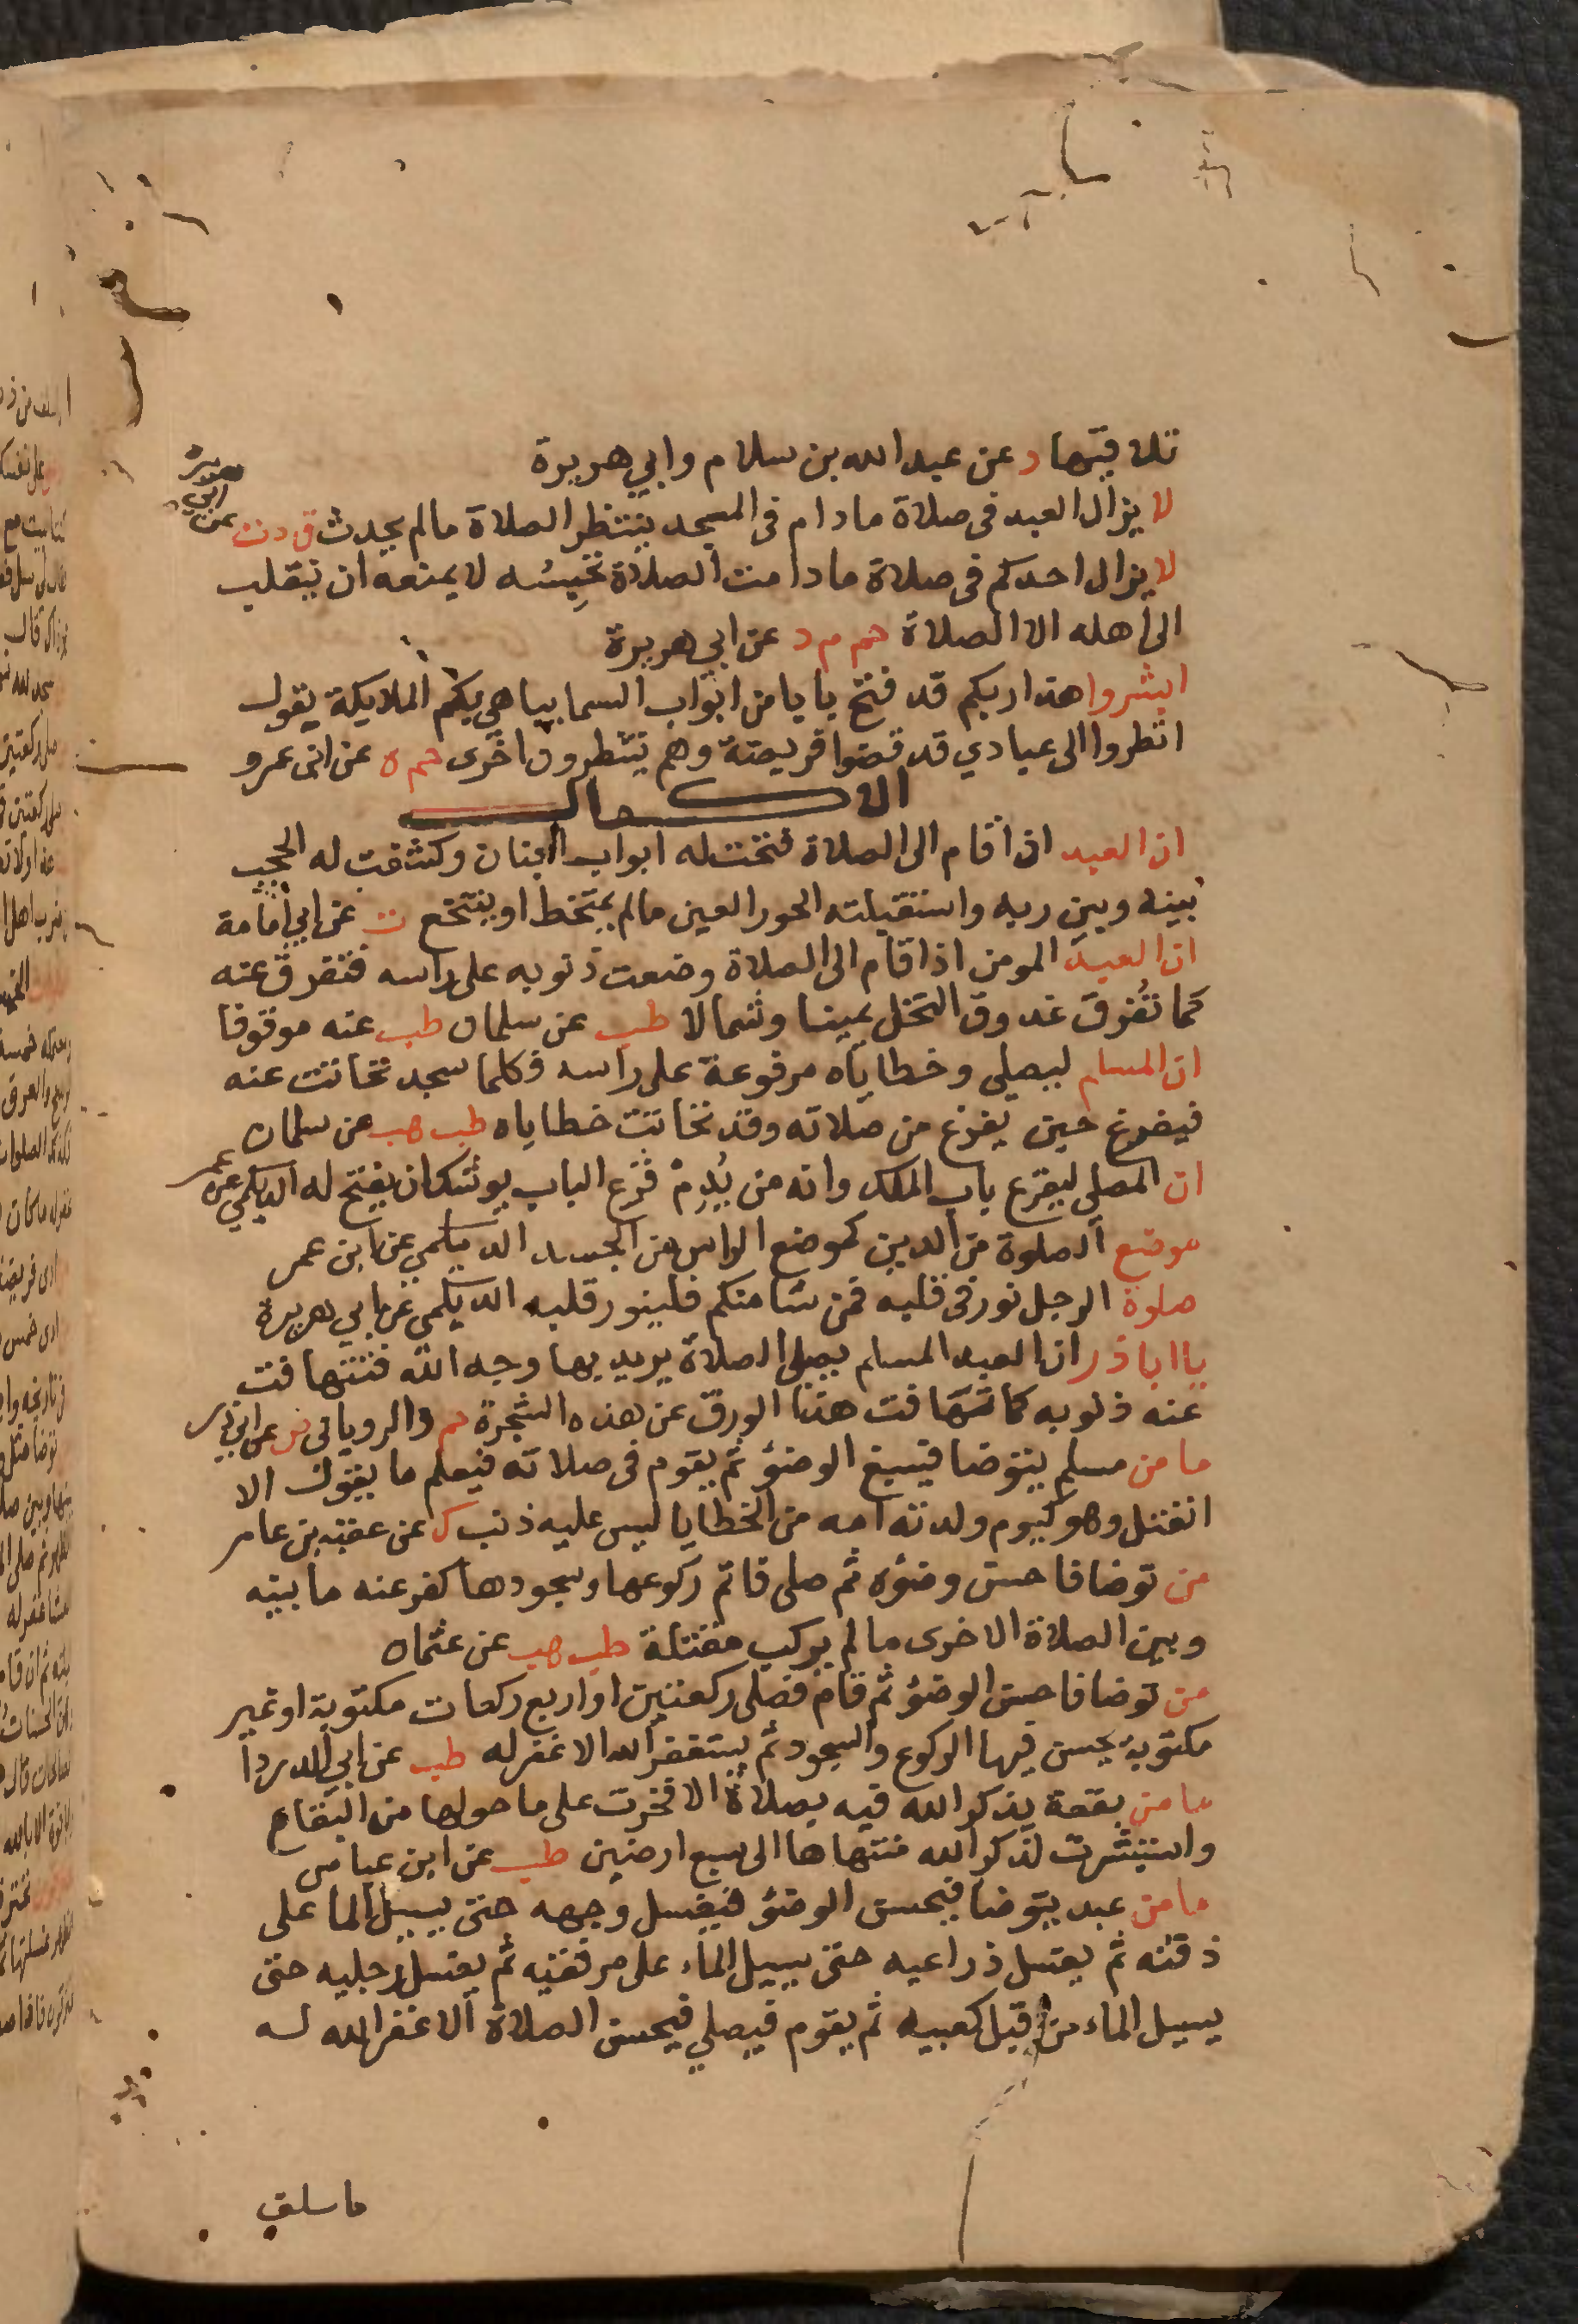 تلاقيتها د عن عبد الله بن سلام وابي هريرة
لا يزال العبد فى صلاة ما دام فى المسجد ينتظر الصلاة مالم يحدث ق د ت عن ابي هريرة
لا يزال احدكم فى صلاة ما دامت الصلاة تحبسه لا يمنعه ان ينقلب
الى اهله الا الصلاة حم م د عن ابي هريرة
ابشروا هذا ربكم قد فتح بابا من ابواب السما يباهي بكم الملايكة يقول
انظروا الى عبادي قد قضوا فريضة وهم ينتظرون اخرى حم ه عن ابن عمرو
الاكمال
ان العبد اذا قام الى الصلاة فتحت له ابواب الجنان وكشفت له الحجب
بينه وبين ربه واستقبلته الحور العين مالم يمتخط او يتنخع ت عن ابي امامة
ان العبد المومن اذا قام الى الصلاة وضعت ذنوبه على راسه فتفرق عنه
كما تفرق عذوق النخل يمينا وشمالا طب عن سلمان طب عنه موقوفا
ان المسلم ليصلي وخطاياه مرفوعة على راسه فكلما سجد تحاتت عنه
فيفرغ حين يفرغ من صلاته وقد تحاتت خطاياه طب هب عن سلمان
ان المصلي ليقرع باب الملك وانه من يُدِمْ قرع الباب يوشك ان يفتح له الديلمي عن عمر
موضع الصلوة من الدين كموضع الراس من الجسد الديلمي عن ابن عمر
صلوة الرجل نور فى قلبه فمن شا منكم فلينور قلبه الديلمي عن ابي هريرة
يا ابا ذر ان العبد المسلم يصلى الصلاة يريد بها وجه الله فتتهافت
عنه ذنوبه كما تتهافت هذا الورق عن هذه الشجرة حم والروياني ض عن ابي ذر
ما من مسلم يتوضا فيسبغ الوضؤ ثم يقوم فى صلاته فيعلم ما يقول الا
انفتل وهو كيوم ولدته امه من الخطايا ليس عليه ذنب ك عن عقبة بن عامر
من توضا فاحسن وضؤه ثم صلى فاتم ركوعها وسجودها كفر عنه ما بينه
وبين الصلاة الاخرى ما لم يركب مقتلة طب هب عن عثمان
من توضا فاحسن الوضؤ ثم قام فصلى ركعتين او اربع ركعات مكتوبة او غير
مكتوبة يحسن فيها الركوع والسجود ثم يستغفر الله الا غفر له طب عن ابي الدردا
ما من بقعة يذكر الله فيه بصلاة الا فخرت على ما حولها من البقاع
واستبشرت لذكر الله منتهاها الى سبع ارضين طب عن ابن عباس
ما من عبد يتوضا فيحسن الوضؤ فيغسل وجهه حتى يسيل الما على
ذقنه ثم يغسل ذراعيه حتى يسيل الماء على مرفقيه ثم يغسل رجليه حتى
يسيل الماء من قبل كعبيه ثم يقوم فيصلي فيحسن الصلاة الا غفر الله له
ما سلف